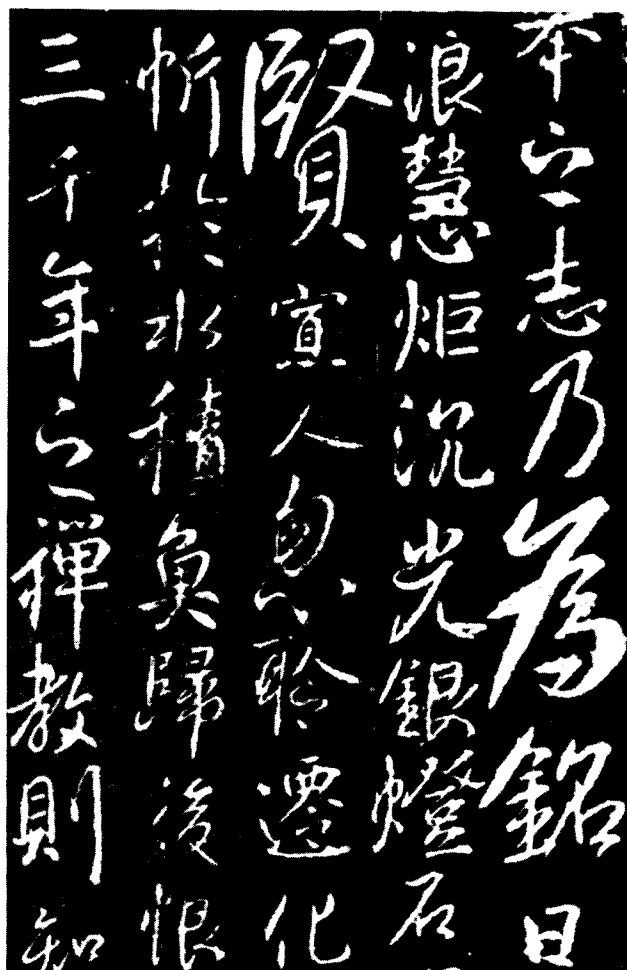 奉之志乃為銘曰
浪慧炬沉光銀燈石
賢人忽聆遷化
忻於水積歸後恨
三千年之禪教則知